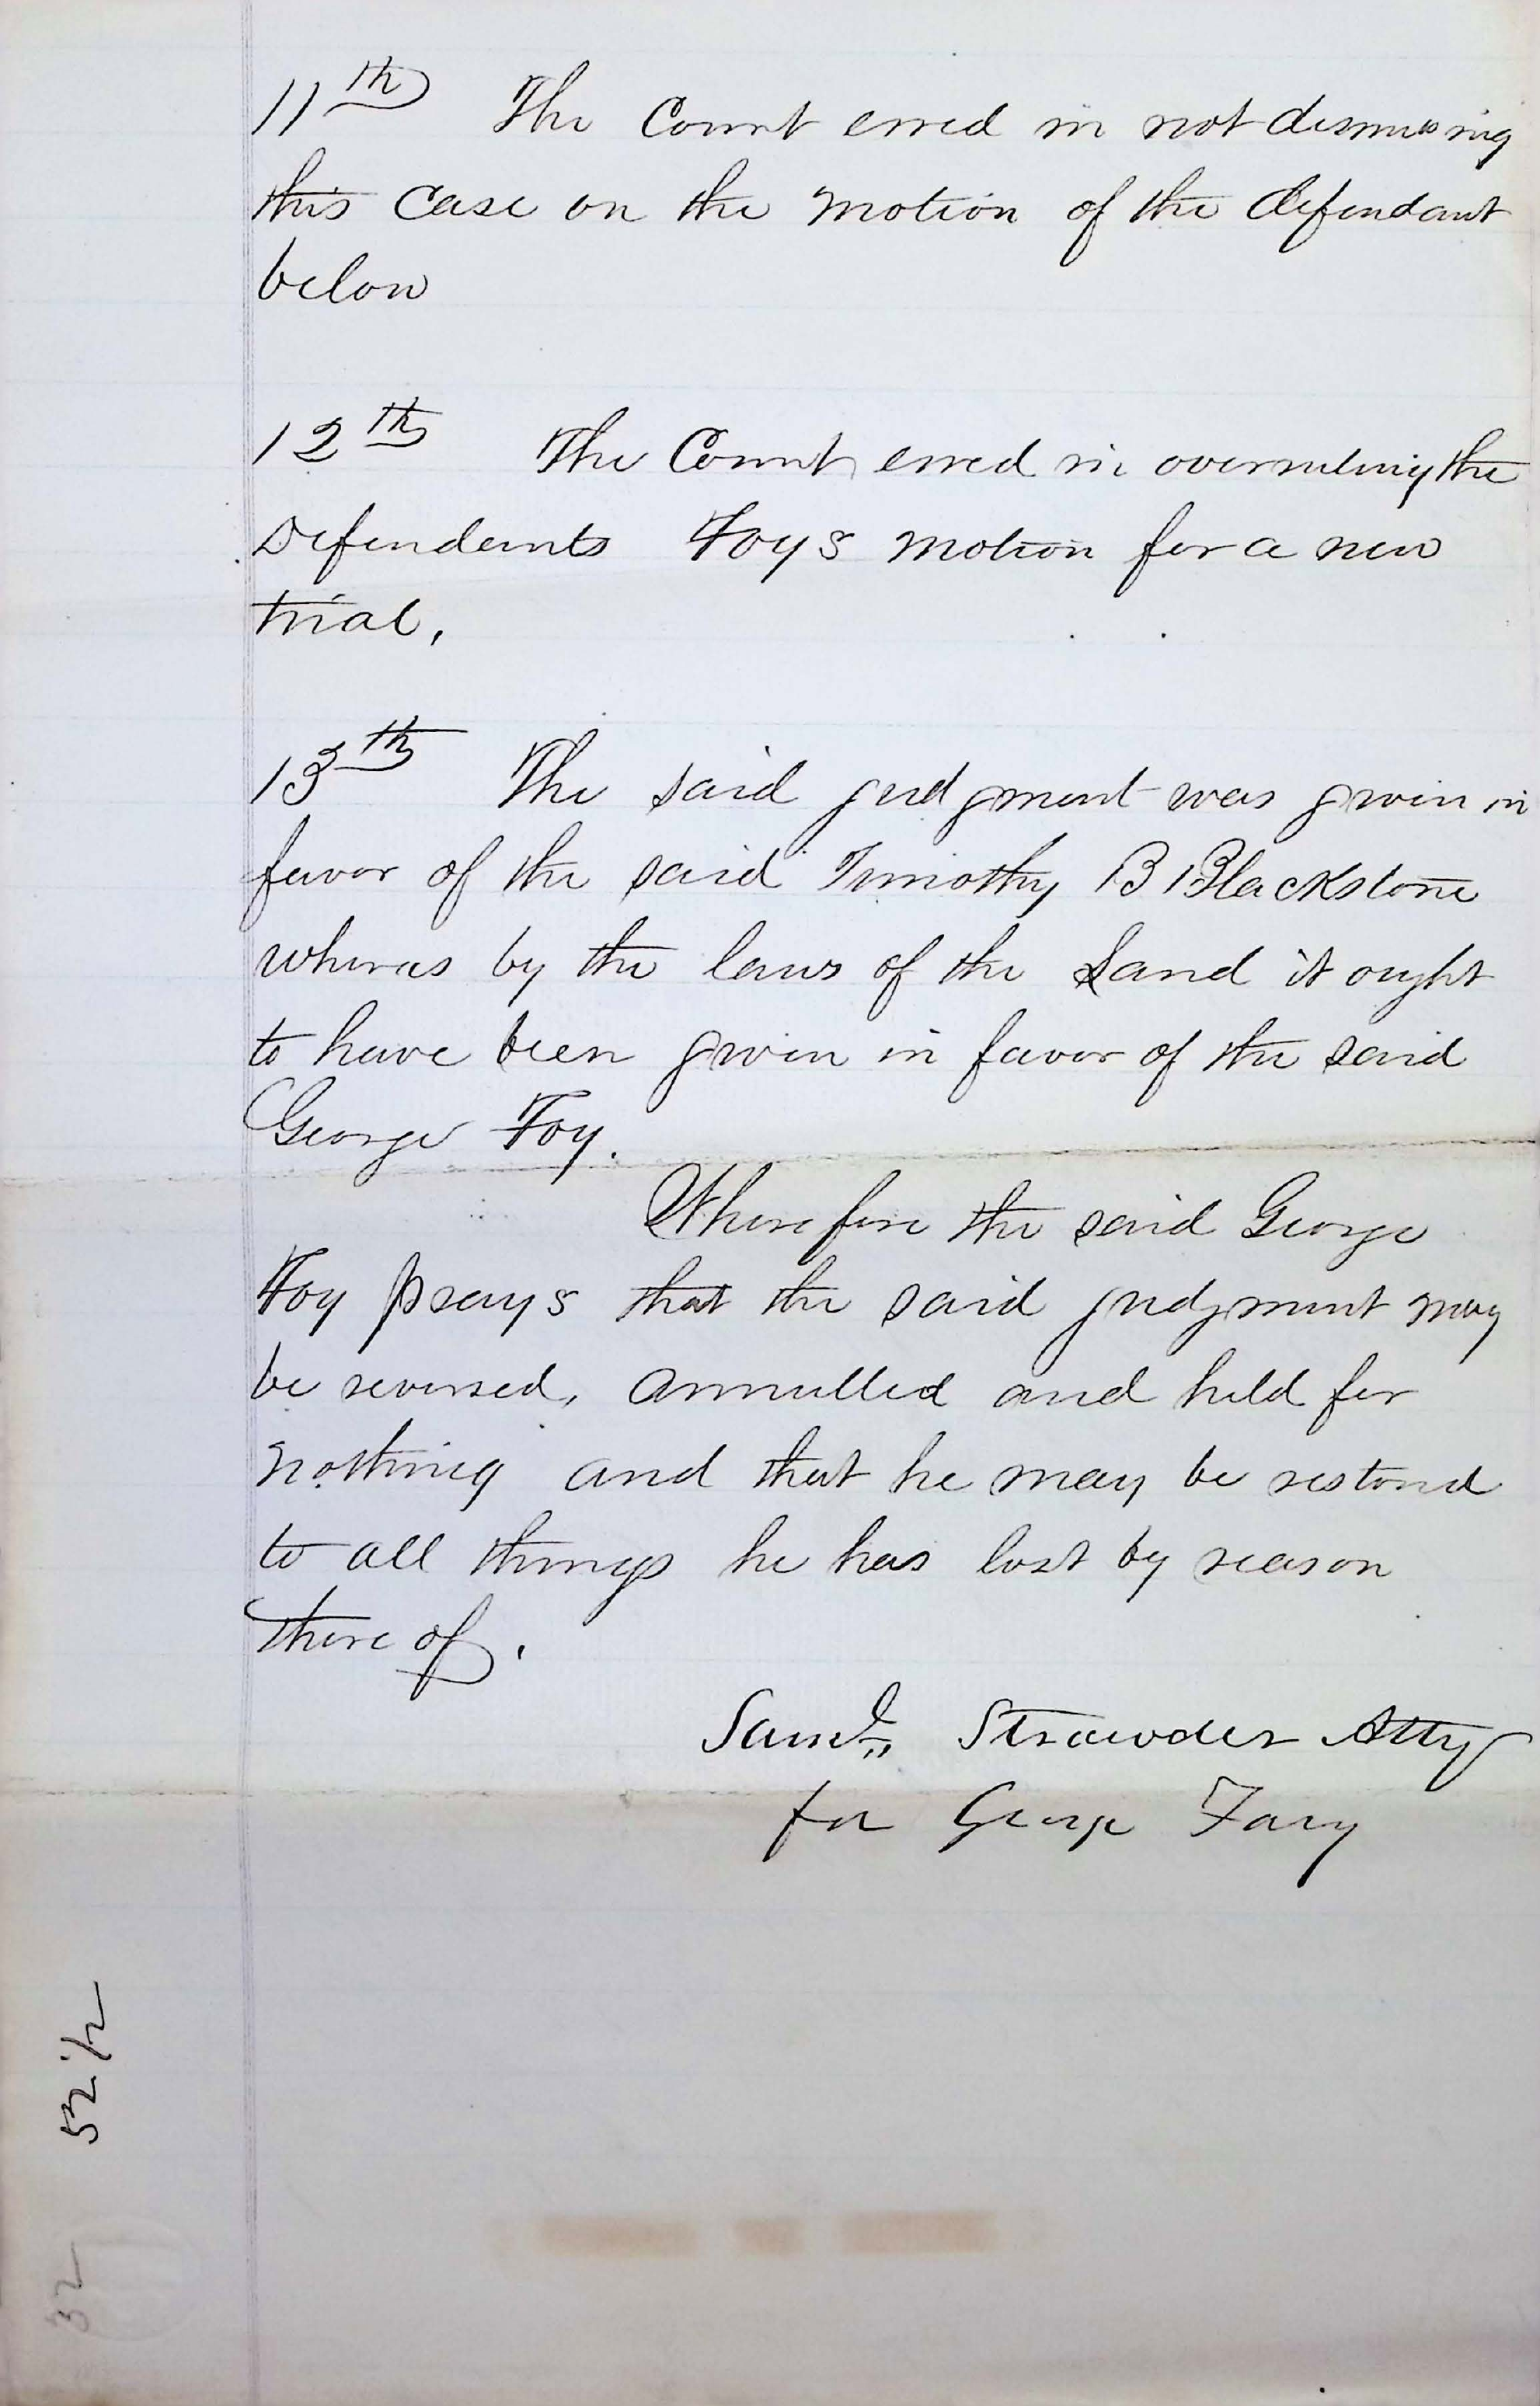 11th The Court erred in not dismissing
this case on the motion of the defendant
below
12th The Court erred in overruling the
Defendants Foys motion for a new
trial,
13th The said judgment was given in
favor of the said Timothy B Blackstone
whereas by the laws of the Land it ought
to have been given in favor of the said
George Foy.
Wherefore the said George
Foy prays that the said judgment may
be reversed, annulled and held for
nothing and that he may be restored
to all things he has lost by reason
there of.
Saml. Strawder Atty
for George Fary
52 1/2
32